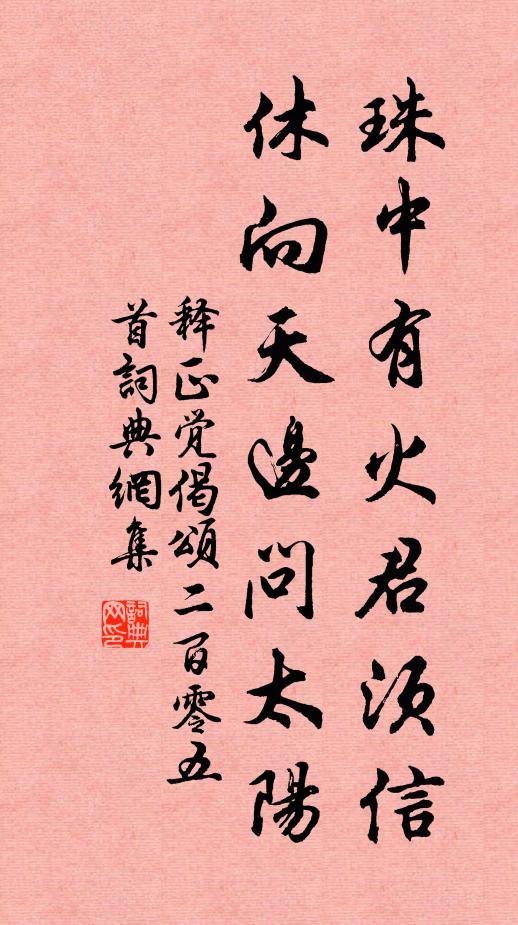 珠中有火君須信
休向天邊問太陽
释正觉偈頌二百零五
首詞典網集
詞典网印